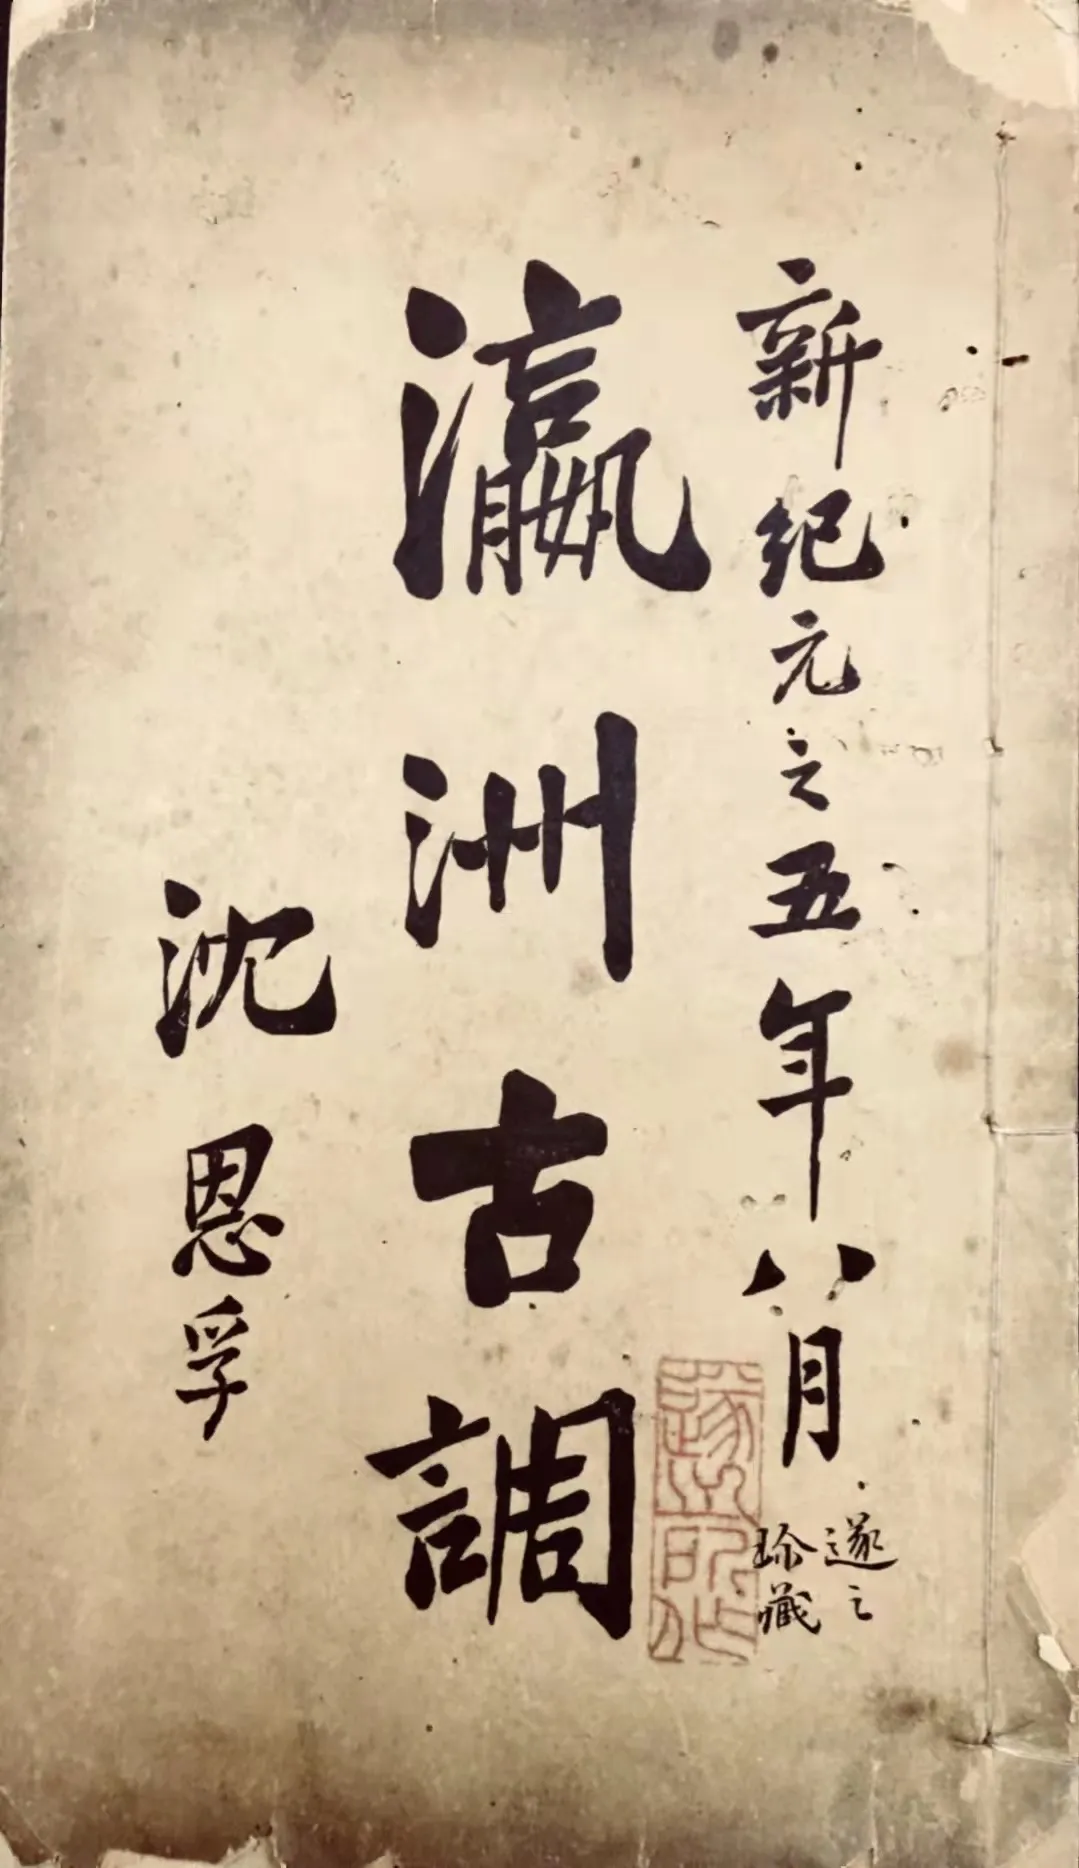 新紀元之五年八月
遂之
珍藏
瀛洲古調
沈恩孚